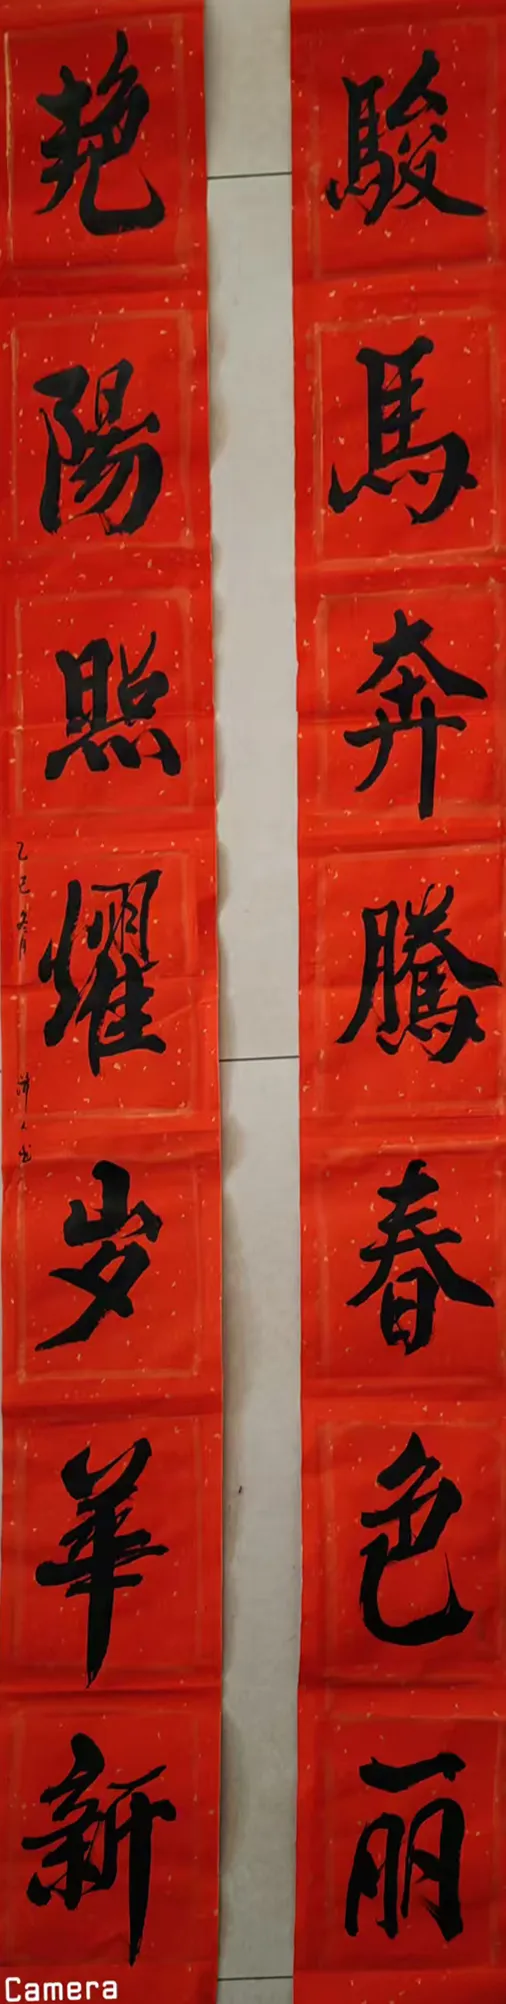 駿馬奔騰春色丽
艳陽照耀岁華新
乙巳冬月
Camera